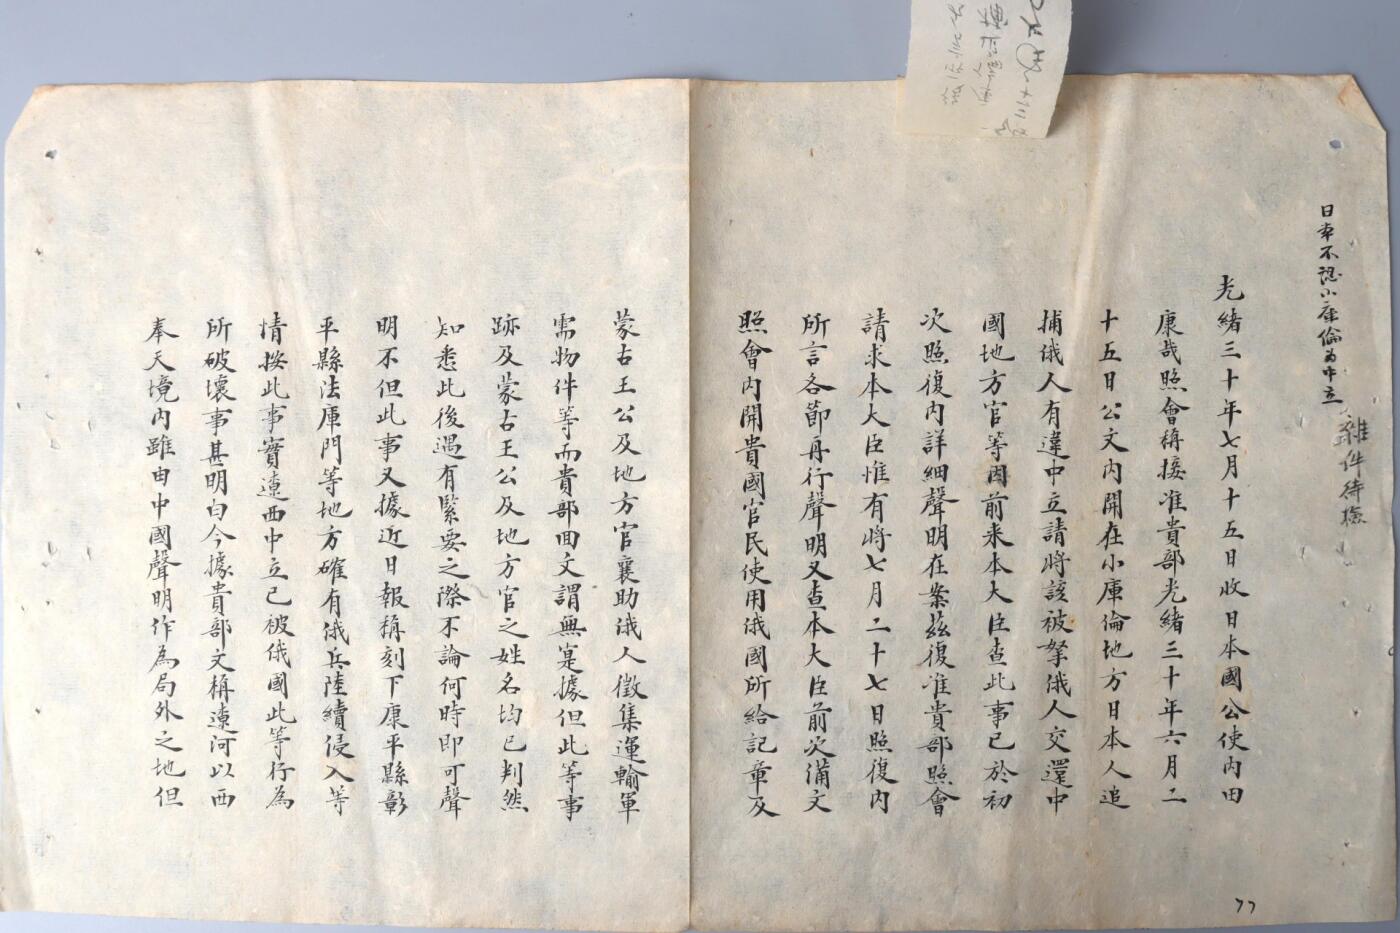 雜件待檢
日本不認小庫倫為中立
光緒三十年七月十五日收日本國公使內田
康哉照會稱接准貴部光緒三十年六月二
十五日公文內開在小庫倫地方日本人追
捕俄人有違中立請將該被拏俄人交還中
國地方官等因前来本大臣查此事已於初
次照復內詳細聲明在案茲復准貴部照會
請求本大臣惟有將七月二十七日照復內
所言各節再行聲明又查本大臣前次備文
照會內開貴國官民使用俄國所給記章及
蒙古王公及地方官襄助俄人徵集運輸軍
需物件等而貴部回文謂無寔據但此等事
跡及蒙古王公及地方官之姓名均已判然
知悉此後遇有緊要之際不論何時即可聲
明不但此事又據近日報稱刻下康平縣彰
平縣法庫門等地方確有俄兵陸續侵入等
情按此事實遼西中立已被俄國此等行為
所破壞事甚明白今據貴部文稱遼河以西
奉天境內雖由中國聲明作為局外之地但
77